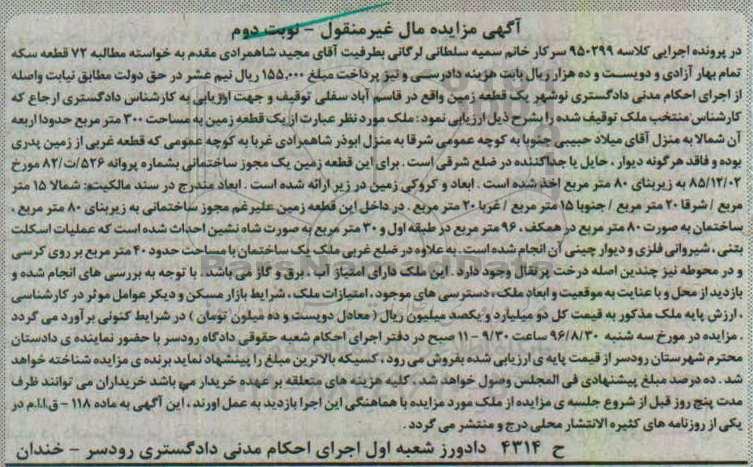 آگهی مزایده مال غیرمنقول - نوبت دوم
در پرونده اجرایی کلاسه ۹۵۰۲۹۹ سرکار خانم سمیه سلطانی لرگانی بطرفیت آقای مجید شاهمرادی مقدم به خواسته مطالبه ۷۲ قطعه سکه
تمام بهار آزادی و دویست و ده هزار ریال بابت هزینه دادرسی و نیز پرداخت مبلغ ۱۵۵,۰۰۰ ریال نیم عشر در حق دولت مطابق نیابت واصله
از اجرای احکام مدنی دادگستری نوشهر یک قطعه زمین واقع در قاسم آباد سفلی توقیف و جهت ارزیابی به کارشناس دادگستری ارجاع که
کارشناس منتخب ملک توقیف شده را بشرح ذیل ارزیابی نمود : ملک مورد نظر عبارت از یک قطعه زمین به مساحت ۳۰۰ متر مربع حدودا اربعه
آن شمالا به منزل آقای میلاد حبیبی جنوبا به کوچه عمومی شرقا به منزل ابوذر شاهمرادی غربا به کوچه عمومی که قطعه غربی از زمین پدری
بوده و فاقد هرگونه دیوار ، حایل یا جداکننده در ضلع شرقی است . برای این قطعه زمین یک مجوز ساختمانی بشماره پروانه ۵۲۶/ت/۸۲ مورخ
۸۵/۱۲/۰۲ به زیربنای ۸۰ متر مربع اخذ شده است . ابعاد و کروکی زمین در زیر ارائه شده است . ابعاد مندرج در سند مالکیت: شمالا ۱۵ متر
مربع / شرقا ۲۰ متر مربع / جنوبا ۱۵ متر مربع / غربا ۲۰ متر مربع . در داخل این قطعه زمین علیرغم مجوز ساختمانی به زیربنای ۸۰ متر مربع ،
ساختمان به صورت ۸۰ متر مربع در همکف ، ۹۶ متر مربع در طبقه اول و ۳۰ متر مربع به صورت شاه نشین احداث شده است که عملیات اسکلت
بتنی ، شیروانی فلزی و دیوار چینی آن انجام شده است . به علاوه در ضلع غربی ملک یک ساختمان با مساحت حدود ۴۰ متر مربع بر روی کرسی
و در محوطه نیز چندین اصله درخت پرتقال وجود دارد . این ملک دارای امتیاز آب ، برق و گاز می باشد . با توجه به بررسی های انجام شده و
بازدید از محل و با عنایت به موقعیت و ابعاد ملک ، دسترسی های موجود ، امتیازات ملک ، شرایط بازار مسکن و دیگر عوامل موثر در کارشناسی
، ارزش پایه ملک مذکور به قیمت کل دو میلیارد و یکصد میلیون ریال ( معادل دویست و ده میلون تومان ) در شرایط کنونی برآورد می گردد
. مزایده در مورخ سه شنبه ۹۶/۸/۳۰ ساعت ۹/۳۰ - ۱۱ صبح در دفتر اجرای احکام شعبه حقوقی دادگاه رودسر با حضور نماینده ی دادستان
محترم شهرستان رودسر از قیمت پایه ی ارزیابی شده بفروش می رود ، کسیکه بالاترین مبلغ را پیشنهاد نماید برنده ی مزایده شناخته خواهد
شد . ده درصد مبلغ پیشنهادی فی المجلس وصول خواهد شد . کلیه هزینه های متعلقه بر عهده خریدار می باشد خریداران می توانند ظرف
مدت پنج روز قبل از شروع جلسه ی مزایده از ملک مورد مزایده با هماهنگی این اجرا بازدید به عمل اورند . این آگهی به ماده ۱۱۸ - ق.ا.ا.م در
یکی از روزنامه های کثیره الانتشار محلی درج و منتشر می گردد .
ح ۴۳۱۴ دادورز شعبه اول اجرای احکام مدنی دادگستری رودسر - خندان